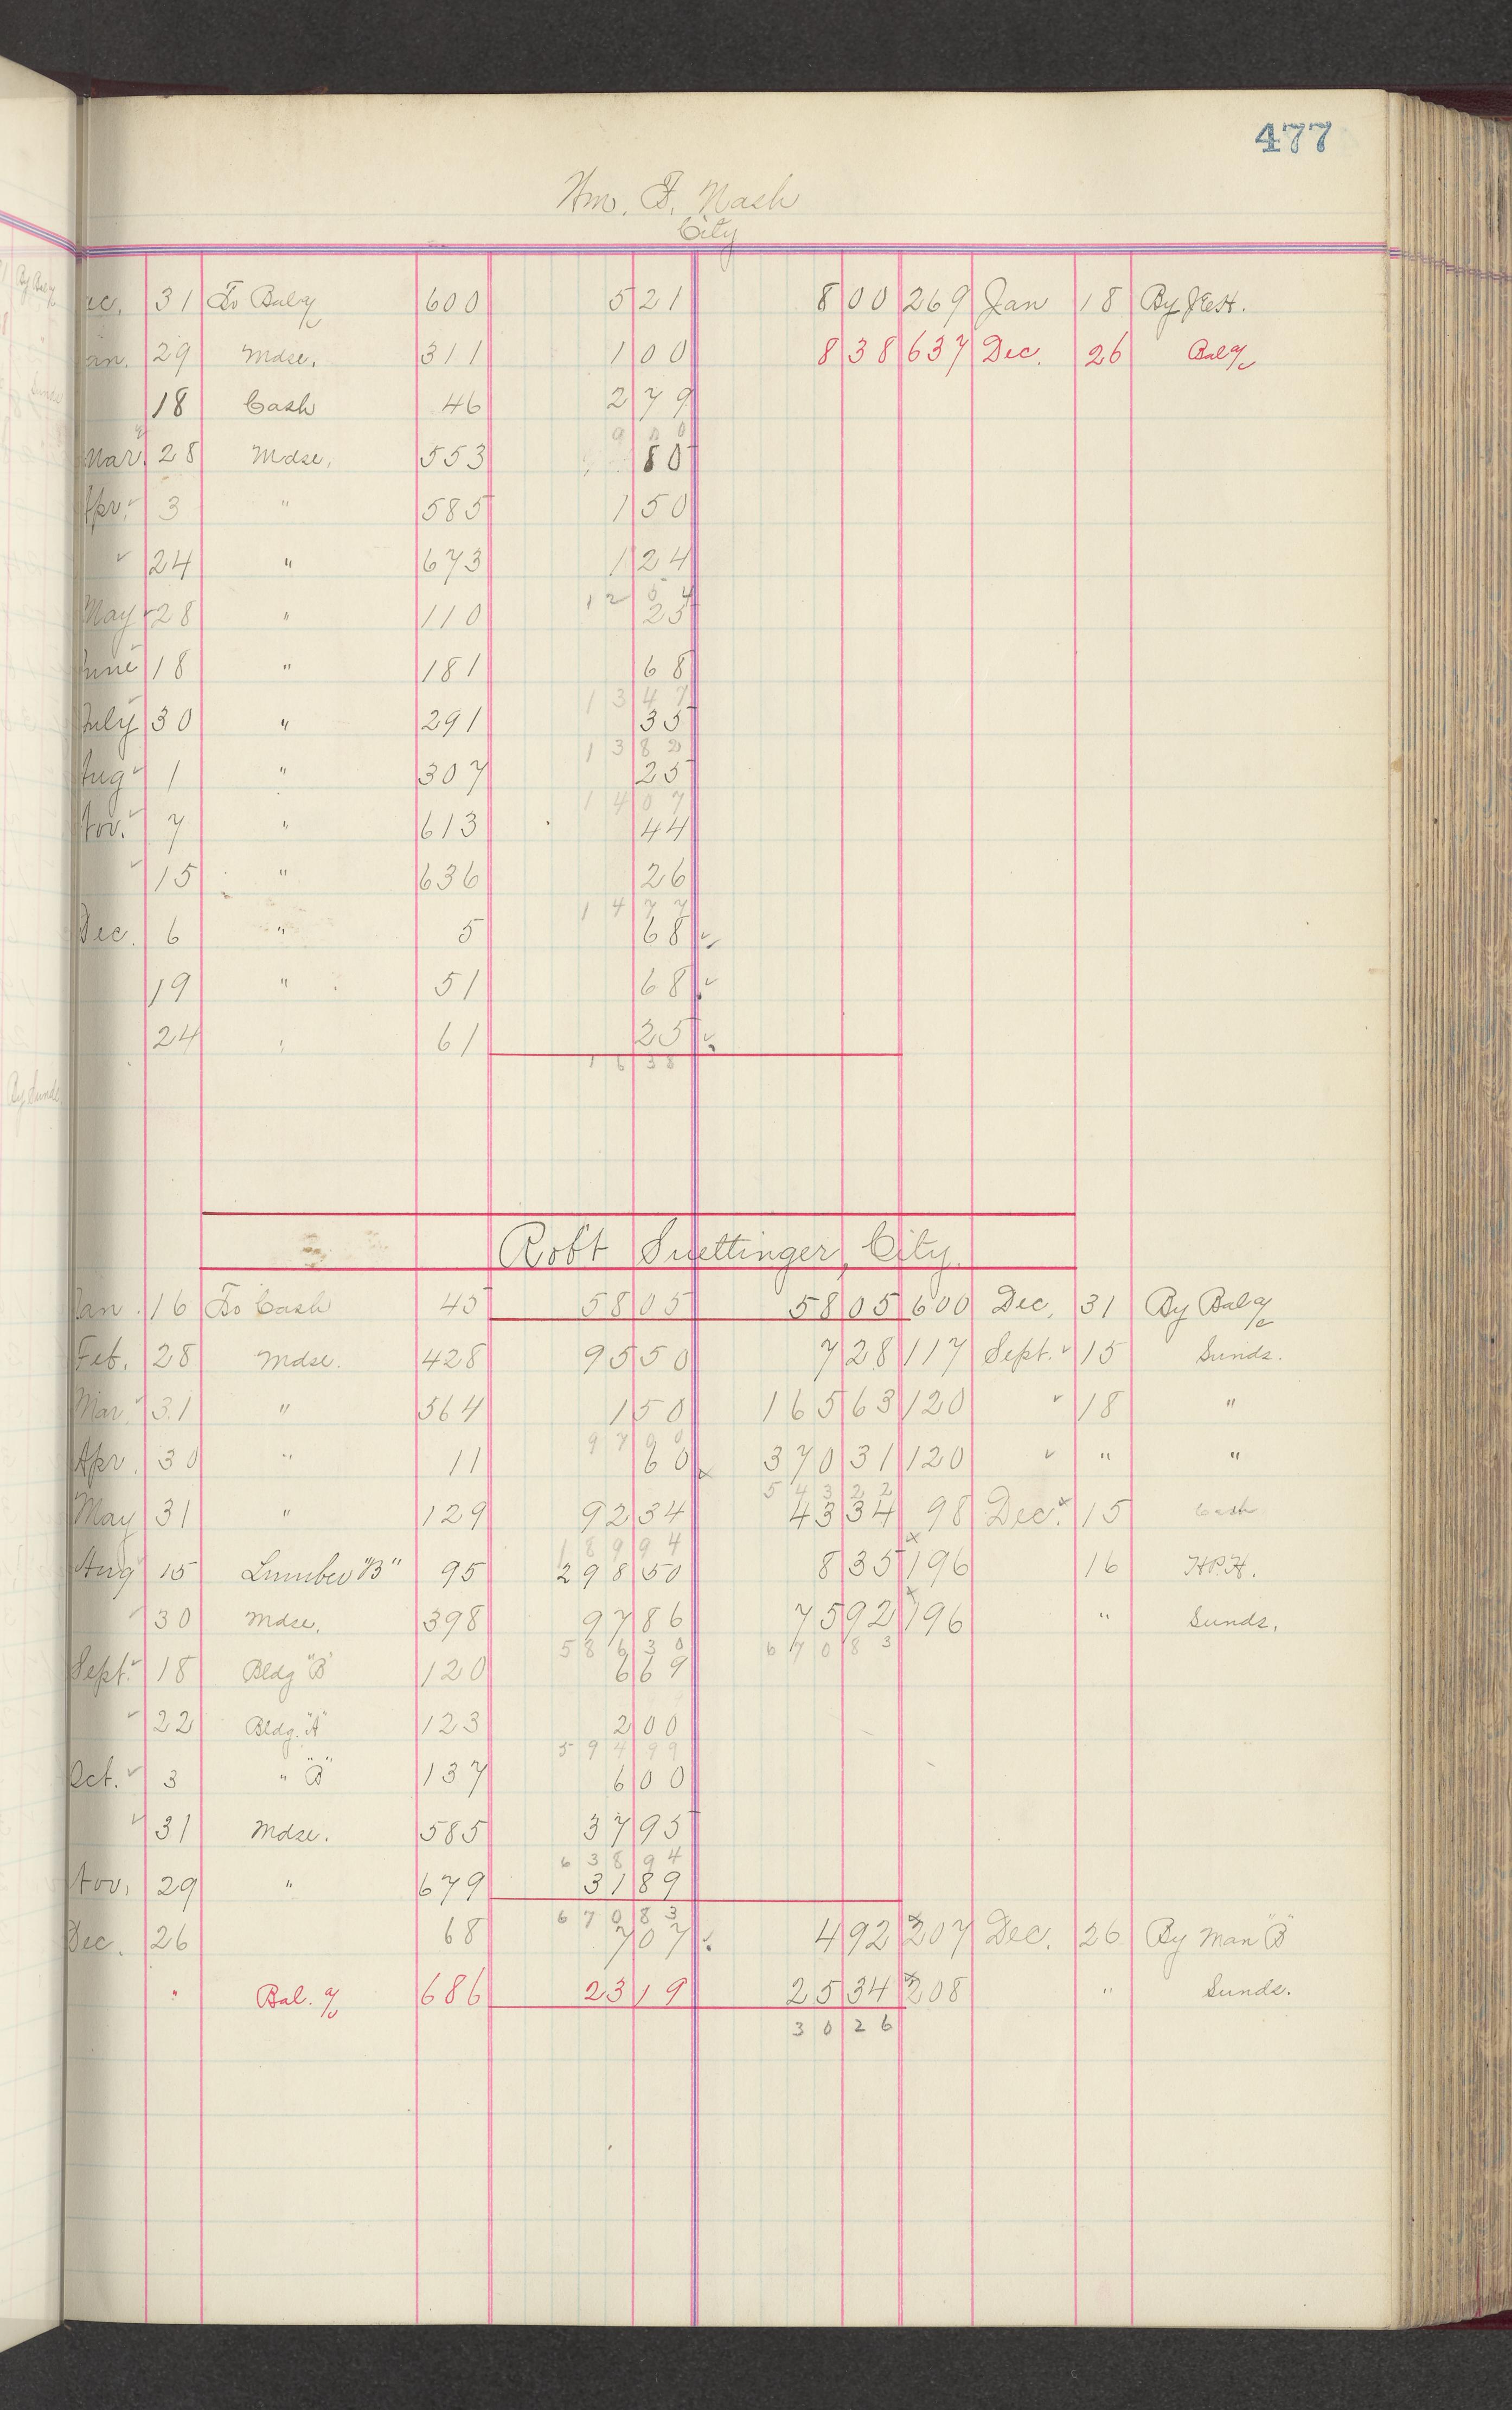 477
Wm. F. Nash
City
ec. 31 To Bal % 600 5 21 8 00 269 Jan 18 By
an. 29 Mdse. 311 1 00 8 38 637 Dec. 26 Bal %
18 Cash 46 2 79
9 00
Mar. 28 Mdse. 553 80
Apr. 3 " 585 1 50
24 " 673 1 24
12 54
May 28 " 110 25
June 18 " 181 68
13 47
July 30 " 291 35
13 82
Aug 1 " 307 25
14 07
Nov. 7 " 613 44
15 " 636 26
14 77
Dec. 6 " 5 68
19 " 51 68
24 " 61 25
16 38
Robt Suettinger, City.
Jan. 16 To Cash 45 58 05 58 05 600 Dec. 31 By Bal %
Feb. 28 Mdse. 428 95 50 7 28 117 Sept. 15 Sunds.
Mar. 31 " 564 1 50 165 63 120 18 "
97 00
Apr. 30 " 11 60 370 31 120 " "
543 22
May 31 " 129 92 34 43 34 98 Dec. 15 Cash
189 94
Aug 15 Lumber "B" 95 298 50 8 35 196 16 H.P.H.
30 Mdse. 398 97 86 75 92 196 " Sunds.
586 30 670 83
Sept. 18 Bldg "B" 120 6 69
22 Bldg. "A" 123 2 00
594 99
Oct. 3 " "B" 137 6 00
31 Mdse. 585 37 95
638 94
Nov. 29 " 679 31 89
670 83
Dec. 26 68 7 07 4 92 207 Dec. 26 By Man "B"
" Bal. % 686 23 19 25 34 208 " Sunds.
30 26